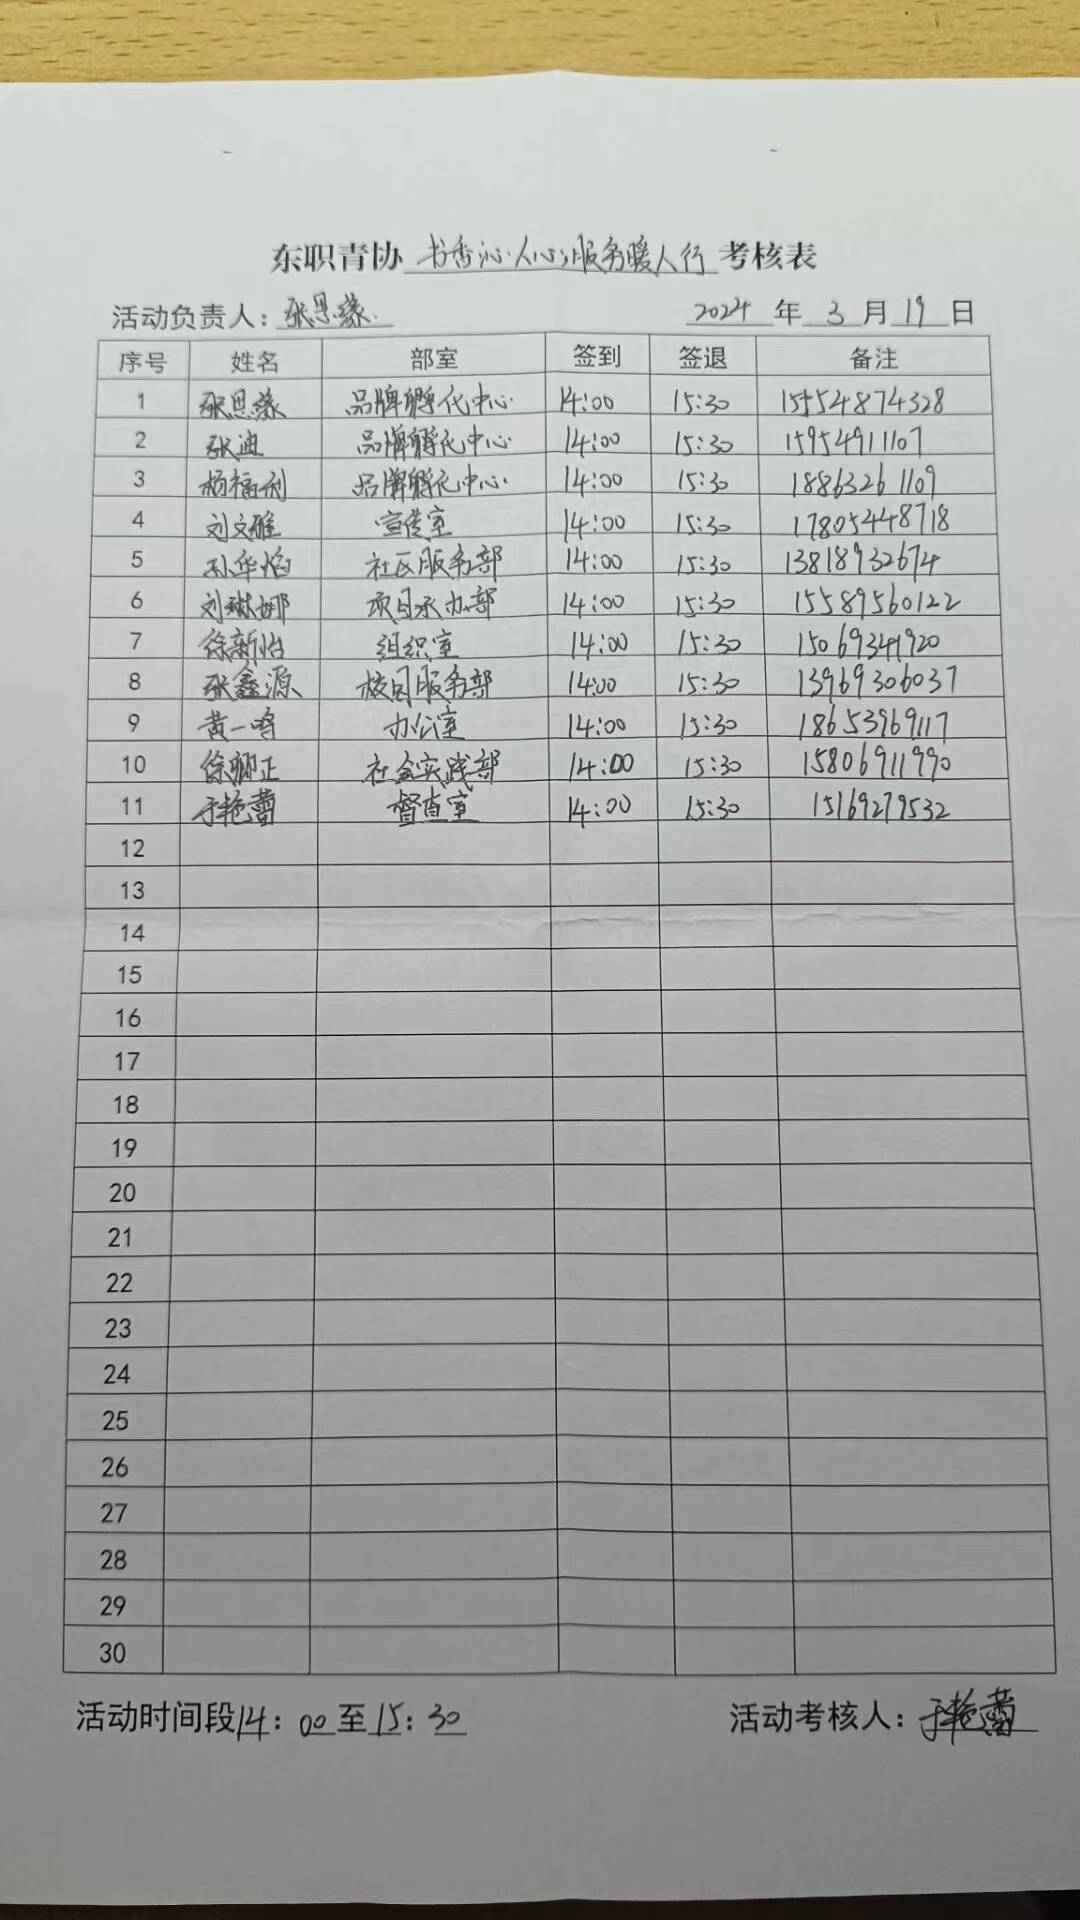 东职青协 书香沁人心,服务暖人行 考核表
活动负责人: 张思缘 2024 年 3 月 19 日
序号 姓名 部室 签到 签退 备注
1 张思缘 品牌孵化中心 14:00 15:30 15554874328
2 张迪 品牌孵化中心 14:00 15:30 15954911107
3 杨福利 品牌孵化中心 14:00 15:30 18863261109
4 刘文雅 宣传室 14:00 15:30 17805448718
5 孙华焰 社区服务部 14:00 15:30 13818932674
6 刘琳娜 项目承办部 14:00 15:30 15589560122
7 徐新怡 组织室 14:00 15:30 15069341920
8 张鑫源 校园服务部 14:00 15:30 13969306037
9 黄一鸣 办公室 14:00 15:30 18653969117
10 徐卿正 社会实践部 14:00 15:30 15806911990
11 于艳蕾 督查室 14:00 15:30 15169279532
12
13
14
15
16
17
18
19
20
21
22
23
24
25
26
27
28
29
30
活动时间段 14:00至15:30 活动考核人: 于艳蕾